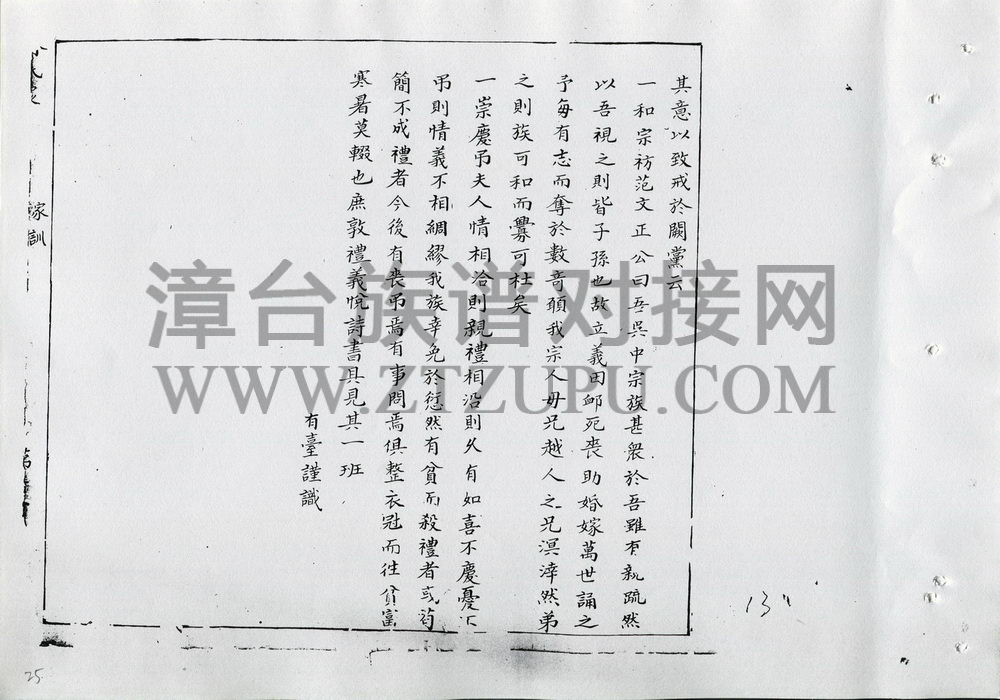 其意以致戒於闕黨云
一和宗祊范文正公曰吾吳中宗族甚衆於吾雖有親疏然
以吾視之則皆子孫也故立義田卹死喪助婚嫁萬世誦之
予每有志而奪於數竒頭我宗人毋兄越人之兄溟涬然弟
之則族可和而釁可杜矣
一崇慶吊夫人情相洽則親禮相沿則久有如喜不慶憂不
吊則情義不相綢繆我族幸免於愆然有貧而殺禮者或茍
簡不成禮者今後有喪吊焉有事問焉俱整衣冠而徃貧富
寒暑莫輟也庶敦禮義悅詩書具見其一班
有臺謹識
訓
第
13
25
漳台族谱对接网
WWW.ZTZUPU.COM